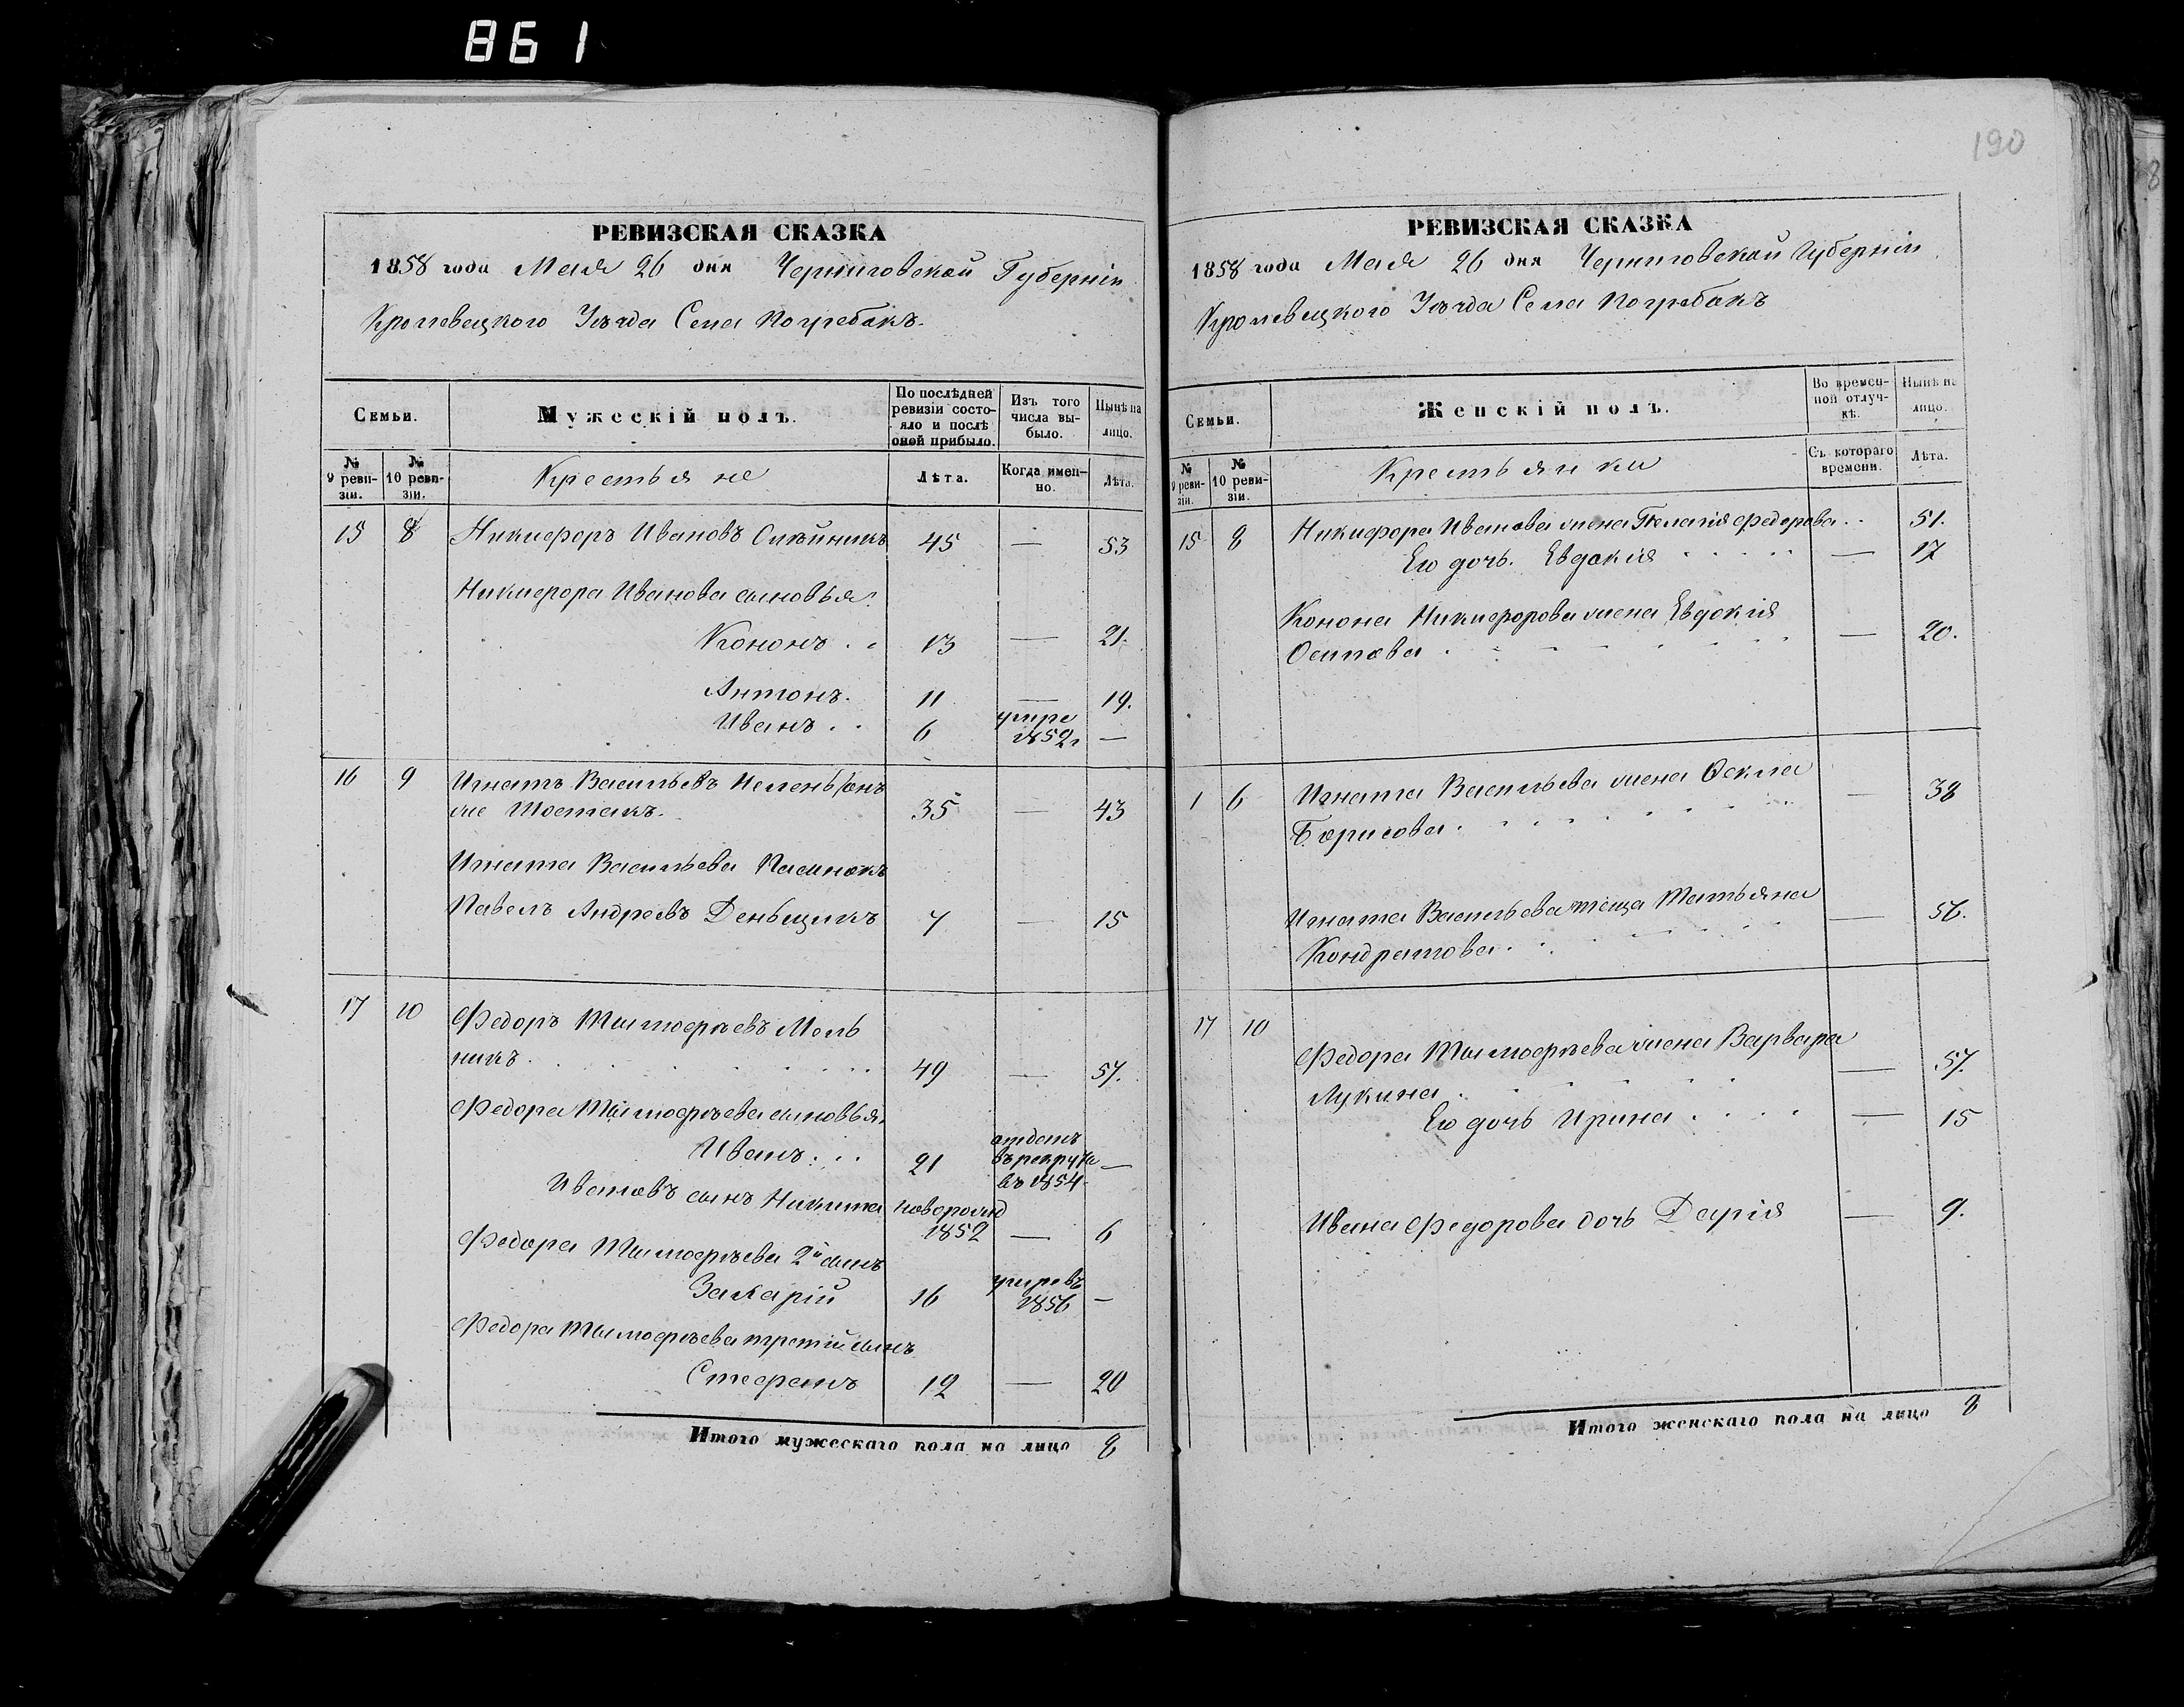 861
190
РЕВИЗСКАЯ СКАЗКА
1858 года Мая 26 дня Черниговской Губерніи
Кролевецкого Уѣзда Села Погребокъ.
Семьи.
Мужескій полъ.
По послѣдней ревизіи состояло и послѣ оной прибыло.
Изъ того числа выбыло.
Нынѣ на лицо.
№ 9 ревизіи.
№ 10 ревизіи.
Крестьяне
Лѣта.
Когда именно.
Лѣта.
15 8 Никифоръ Ивановъ Олѣйникъ 45 — 53
Никифора Иванова сыновья:
Кононъ . . 13 — 21.
Антонъ. 11 — 19.
Иванъ . . 6 умре 1852г —
16 9 Игнатъ Васильевъ онъ
же Шостакъ. 35 — 43
Игната Васильева Пасынокъ
Павелъ Андреевъ Деньщикъ 7 — 15
17 10 Федоръ Тимофѣевъ Мель
никъ . 49 — 57.
Федора Тимофѣева сыновья.
Иванъ . . . 21 отданъ въ рекруты въ 1854 —
Ивановъ сынъ Никита новорожд 1852 — 6
Федора Тимофѣева 2й сынъ
Захарій 16 умре въ 1856 —
Федора Тимофѣева третій сынъ
Стефанъ 12 — 20
Итого мужескаго пола на лицо 8
РЕВИЗСКАЯ СКАЗКА
1858 года Мая 26 дня Черниговской Губерніи
Кролевецкого Уѣзда Села Погребокъ
Семьи.
Женскій полъ.
Во временной отлучкѣ.
Нынѣ на лицо.
№ 9 ревизіи.
№ 10 ревизіи.
Крестьянки
Съ котораго времени.
Лѣта.
15 8 Никифора Иванова жена Пелагія Федорова . . 51.
Его дочь. Евдокія — 17
Конона Никифорова жена Евдокія
Осипова . — 20.
1 6 Игната Васильева жена Ѳекла — 38
Борисова .
Игната Васильева теща Татьяна — 56.
Кондратова .
17 10 Федора Тимофѣева жена Варвара
Лукина . — 57.
Его дочь Ирина . . . . — 15
Ивана Федорова дочь Дарія — 9.
Итого женскаго пола на лицо 8